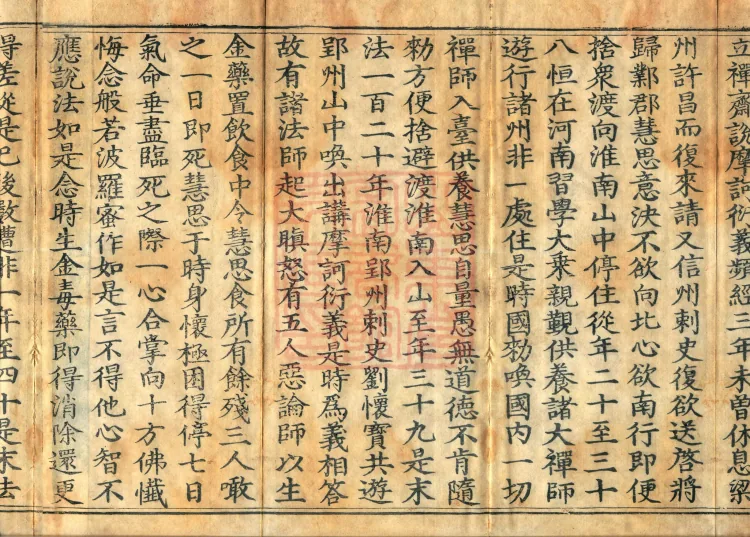 立禪齋說摩訶衍義頻經三年未曾休息梁
州許昌而復來請又信州刺史復欲送啓將
歸鄴郡慧思意決不欲向北心欲南行即便
捨衆渡向淮南山中停住從年二十至三十
八恒在河南習學大乘親覲供養諸大禪師
遊行諸州非一處住是時國勑喚國內一切
禪師入臺供養慧思自量愚無道德不肯隨
勑方便捨避渡淮南入山至年三十九是末
法一百二十年淮南郢州刺史劉懷寶共遊
郢州山中喚出講摩訶衍義是時爲義相答
故有諸法師起大瞋怒有五人惡論師以生
金藥置飲食中令慧思食所有餘殘三人噉
之一日即死慧思于時身懷極困得停七日
氣命垂盡臨死之際一心合掌向十方佛懺
悔念般若波羅蜜作如是言不得他心智不
應說法如是念時生金毒藥即得消除還更
得差從是已後數遭非一年至四十是末法